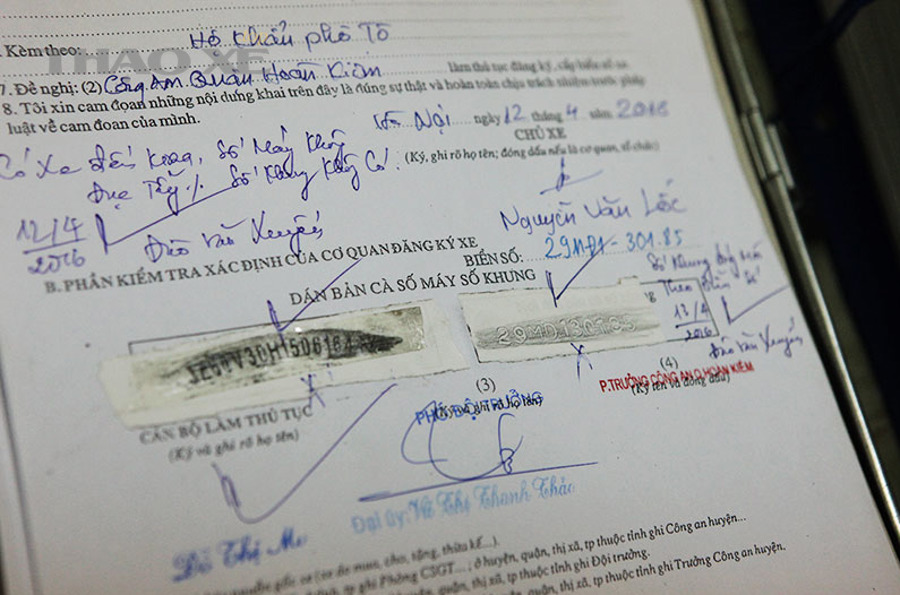 Kèm theo: Hộ Khẩu phô Tô
THAO XE
7. Đề nghị: (2) Công An Quận Hoàn Kiếm làm thủ tục đăng ký, cấp biển số xe
8. Tôi xin cam đoạn những nội dung khai trên đây là đúng sự thật và hoàn toàn chịu trách nhiệm trước pháp
luật về cam đoan của mình.
Hà Nội ngày 12 tháng 4 năm 2016
CHỦ XE
(Ký, ghi rõ họ tên; đóng dấu nếu là cơ quan, tổ chức)
Có Xe đến Kiểm, Số Máy Không
Đục Tẩy /. Số Khung Không Có.
12/4
2016
Đào Văn Xuyến
Nguyễn Văn Lốc
B. PHẦN KIỂM TRA XÁC ĐỊNH CỦA CƠ QUAN ĐĂNG KÝ XE
BIỂN SỐ: 29MĐ1-301.85
DÁN BẢN CÀ SỐ MÁY SỐ KHUNG
Số Khung đóng mới
Theo Biển Số
13/4
2016
Đào Văn Xuyến
29MD13C1.85
CÁN BỘ LÀM THỦ TỤC
(Ký và ghi rõ họ tên)
(3)
PHÓ ĐỘI TRƯỞNG
(Ký và ghi rõ họ tên)
(4)
P.TRƯỞNG CÔNG AN Q.HOÀN KIẾM
(Ký tên và đóng dấu)
Đỗ Thị Mơ
Đại úy: Vũ Thị Thanh Thảo
gốc xe (xe do mua, cho, tặng, thừa kế...).
ghi Phòng CSGT...; ở huyện, quận, thị xã, tp thuộc tỉnh ghi Công an huyện...
quận, thị xã, tp thuộc tỉnh ghi Đội trưởng.
quận, thị xã, tp thuộc tỉnh ghi Trưởng Công an huyện.